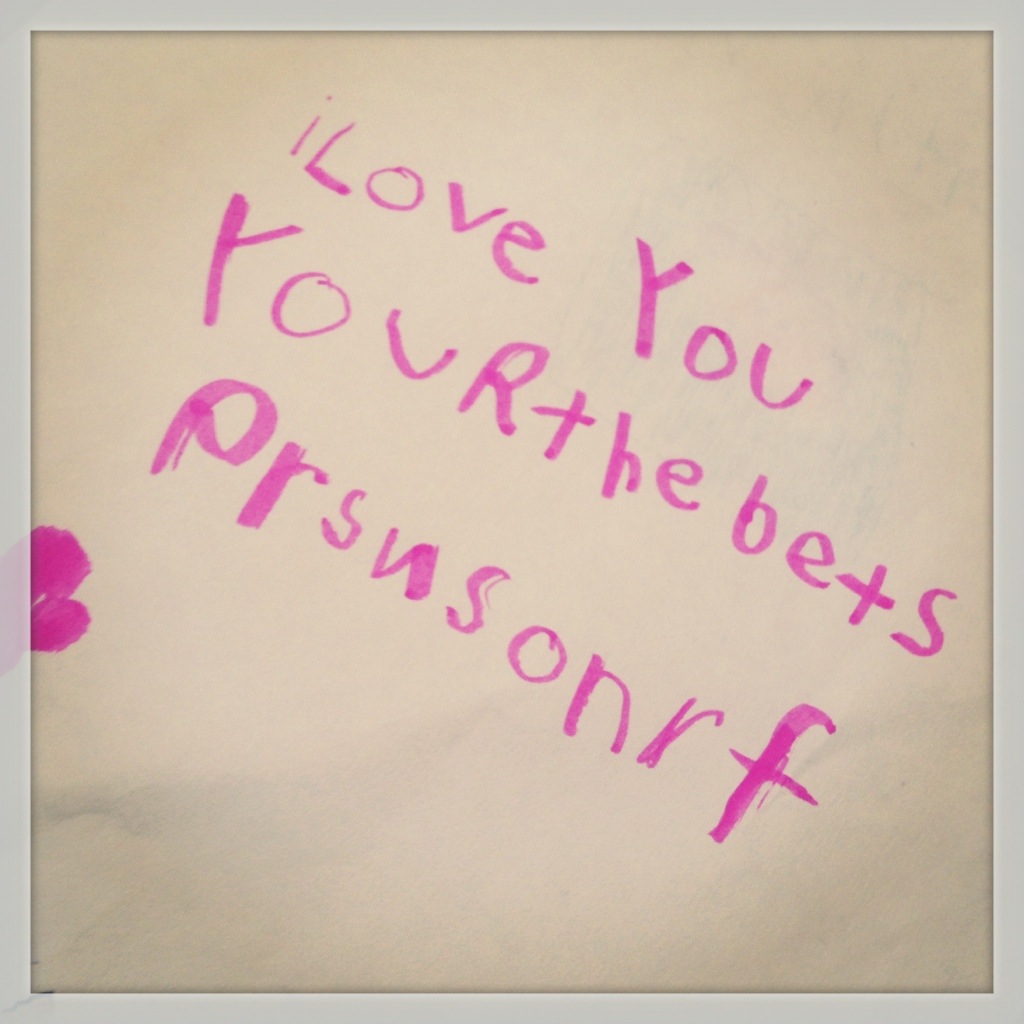 iLove You
YouRthebets
Prsusonrf